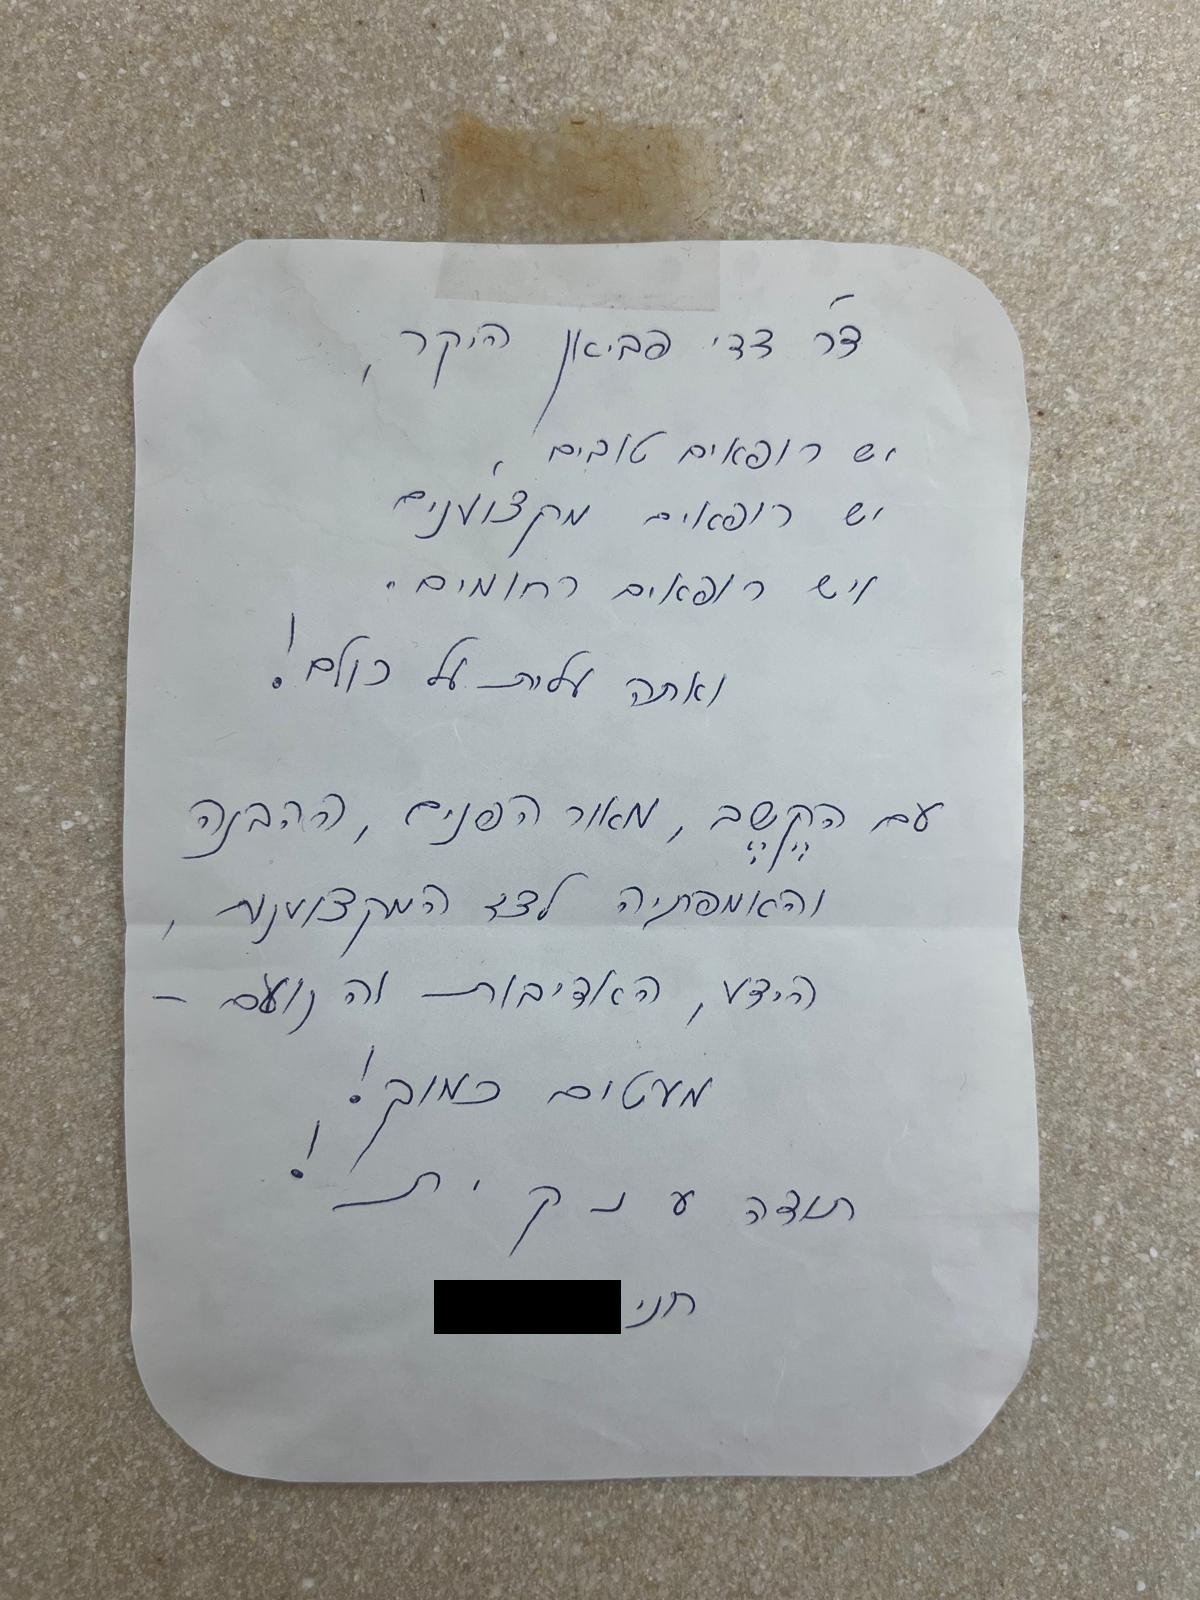 ד״ר צדי פביאן היקר,
יש רופאים טובים,
יש רופאים מקצוענים
ויש רופאים רחומים.
ואתה עלית על כולם!
עם הקֶשֶב, מאור הפנים, ההבנה
והאמפתיה לצד המקצוענות,
הידע, האדיבות והנועם –
מעטים כמוך!
תודה ע נ ק י ת!
חני